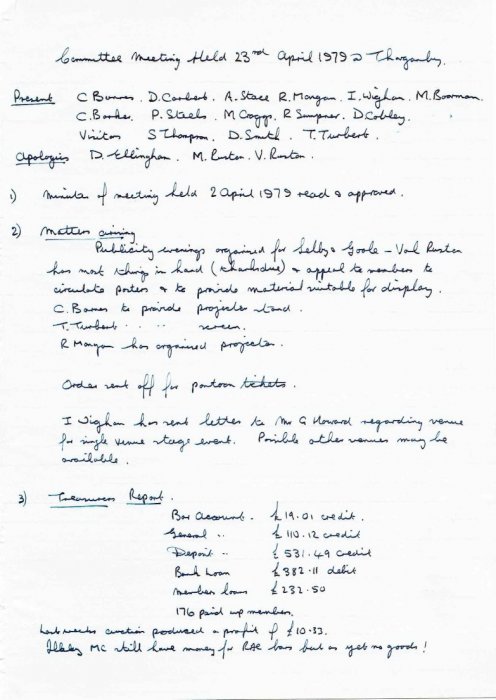 Committee Meeting Held 23rd April 1979 @ Thorganby.
Present C Barnes. D. Corbert. A. Stace R. Morgan. I. Wigham. M. Boorman.
C. Banks. P. Steels. M Coggs. R Sumpner. D Cobley.
Visitors S Thompson. D. Smith. T. Turbert.
Apologies D. Ellingham. M. Ruston. V. Ruston.
1) Minutes of meeting held 2 April 1979 read & approved.
2) Matters arising
Publicity evenings organised for Selby & Goole - Val Ruston
has most things in hand () & appeal to members to
circulate posters & to provide material suitable for display.
C. Barnes to provide projector stand.
T. Turbert. " " screen.
R Morgan has organised projector.
Order sent off for pontoon tickets.
I Wigham has sent letter to Mr G Howard regarding venue
for single venue stage event. Possible other venues may be
available.
3) Treasurers Report.
Bar Account. £19.01 credit.
General " £110.12 credit
Deposit " £531.49 credit
Bank Loan £382.11 debit
member loans £232.50
176 paid up members.
Last weeks auction produced a profit of £10.33.
Ilkley MC still have money for RAC bars but as yet no goods!